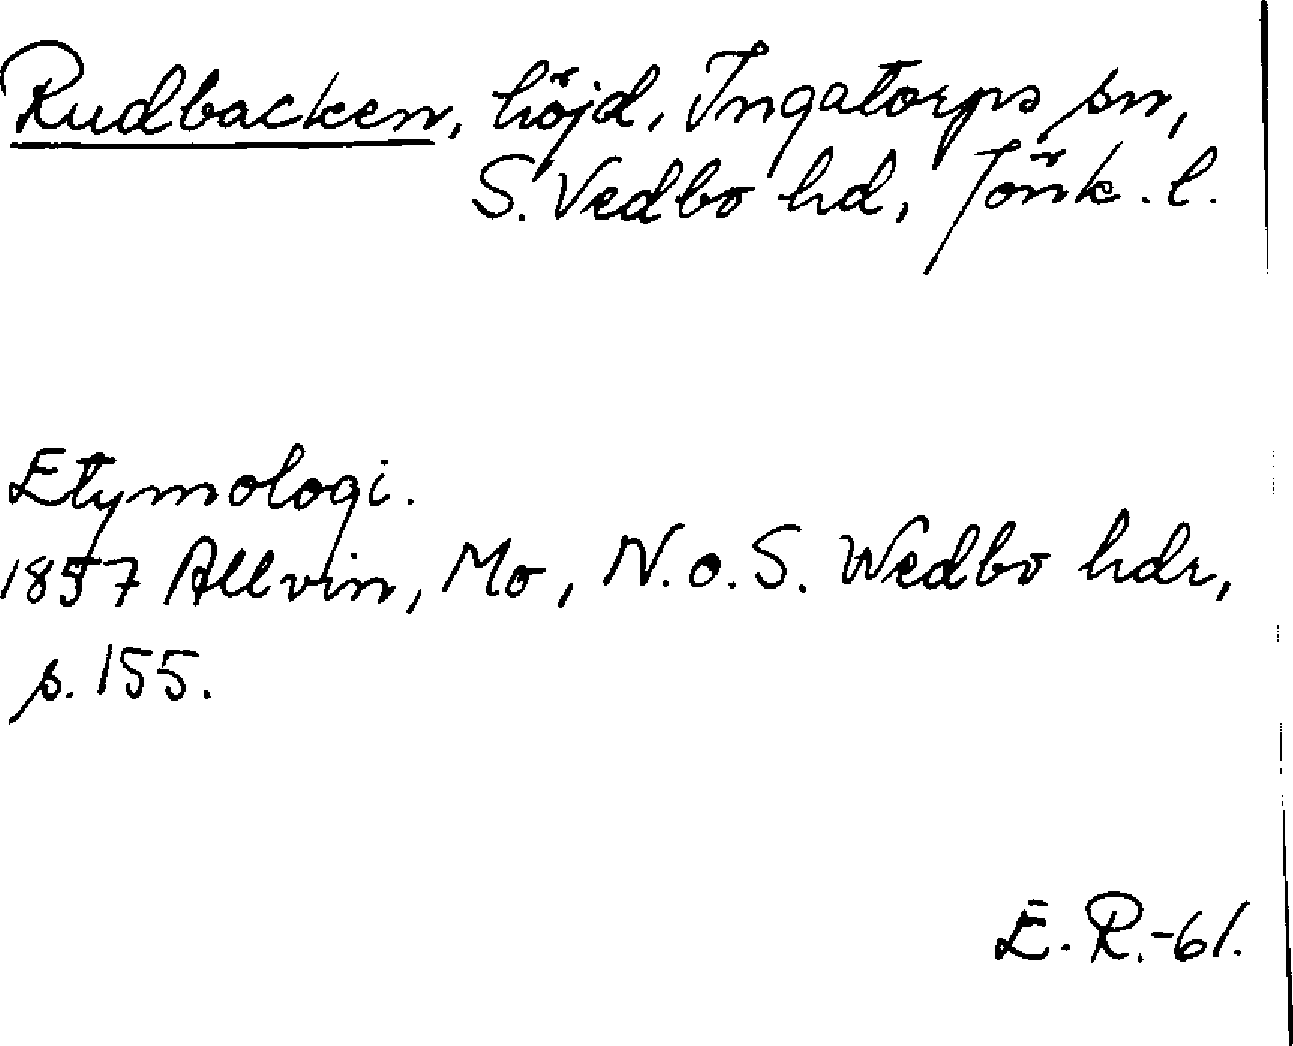 Rudbacken, höjd, Ingatorps sn,
S. Vedbo hd, Jönk. l.
Etymologi.
1857 Allvin, Mo, N. o. S. Wedbo hdr,
s. 155.
E. R. -61.